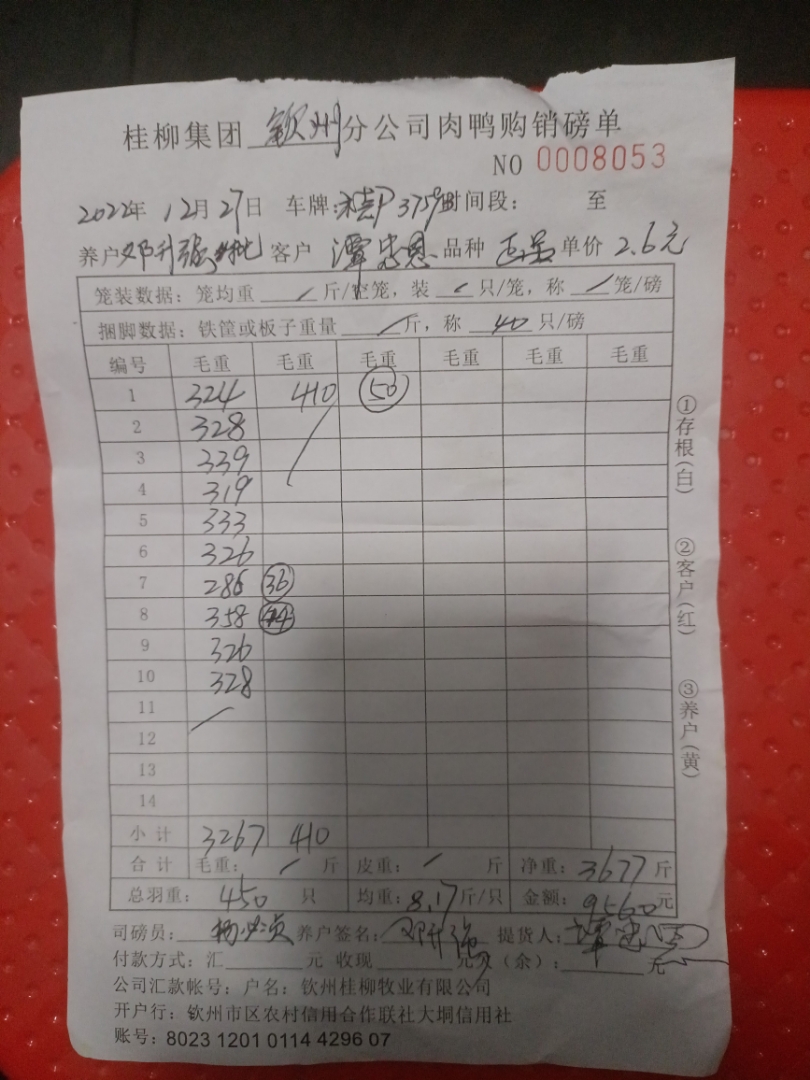 桂柳集团 钦州 分公司肉鸭购销磅单
NO 0008053
2022年 12月 27日 车牌: 时间段: 至
养户 邓升强 客户 谭忠恩 品种 单价 2.6元
笼装数据: 笼均重 / 斤/空笼, 装 / 只/笼, 称 / 笼/磅
捆脚数据: 铁筐或板子重量 / 斤, 称 40 只/磅
编号 毛重 毛重 毛重 毛重 毛重 毛重
1 324 410 50
2 328
3 339
4 319
5 333
6 326
7 286 36
8 358 44
9 326
10 328
11
12
13
14
小计 3267 410
合计 毛重: / 斤 皮重: / 斤 净重: 3677 斤
总羽重: 450 只 均重: 8.17 斤/只 金额: 9560 元
司磅员: 养户签名: 邓升强 提货人: 谭忠恩
付款方式: 汇 元 收现 元 欠(余): 元
公司汇款帐号: 户名: 钦州桂柳牧业有限公司
开户行: 钦州市区农村信用合作联社大垌信用社
账号: 8023 1201 0114 4296 07
①存根(白)
②客户(红)
③养户(黄)